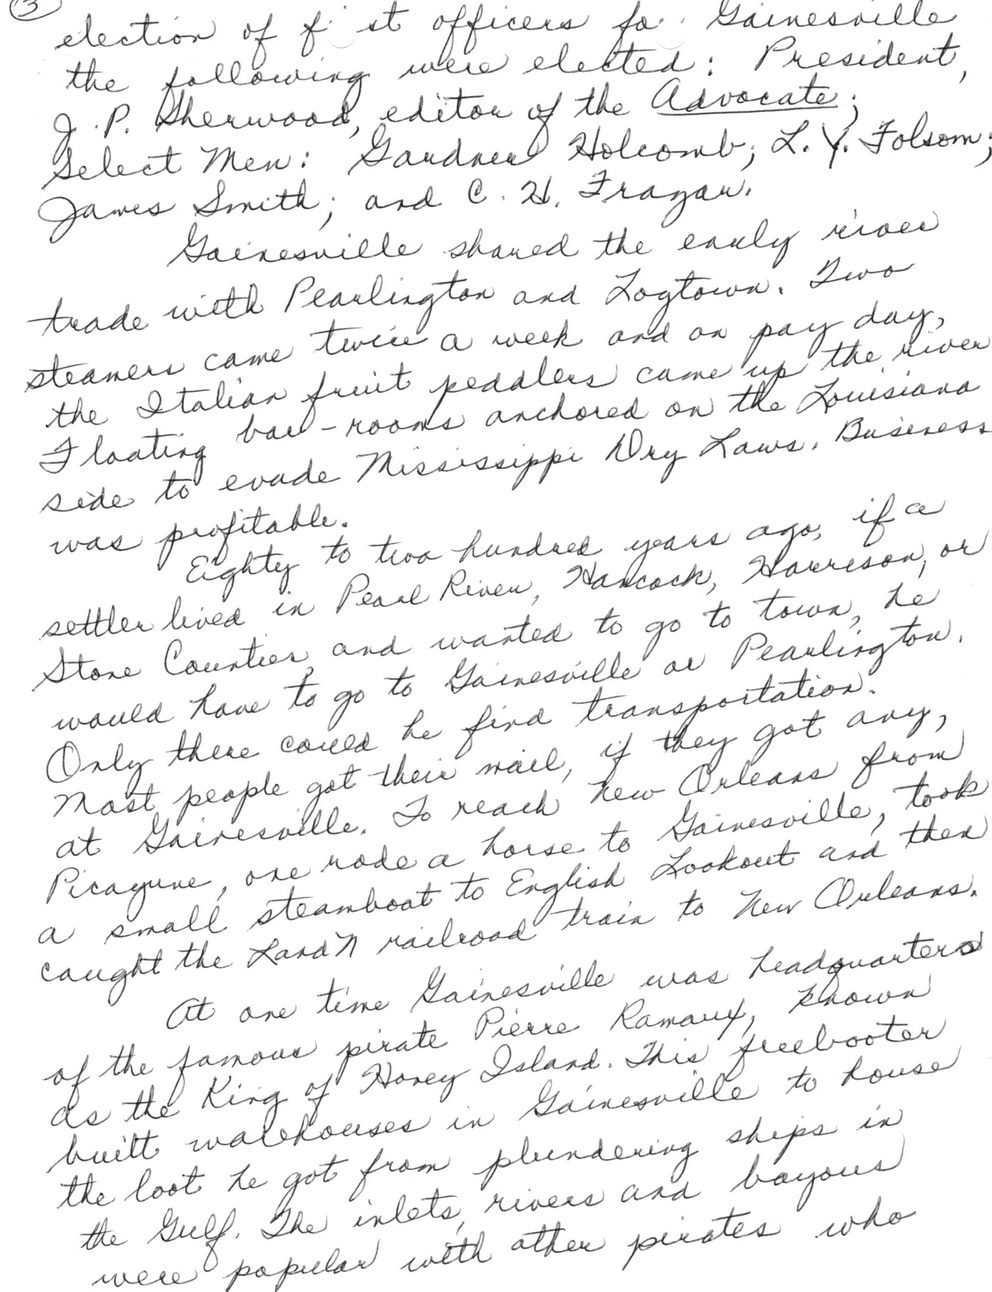 3
election of f st officers fo Gainesville
the following were elected: President,
J. P. Sherwood, editor of the Advocate;
Select Men: Gardner Holcomb; L. Y. Folsom;
James Smith; and C. H. Frazar.
Gainesville shared the early river
trade with Pearlington and Logtown. Two
steamers came twice a week and on pay day,
the Italian fruit peddlers came up the river
Floating bar-rooms anchored on the Louisiana
side to evade Mississippi Dry Laws. Business
was profitable.
Eighty to two hundred years ago, if a
settler lived in Pearl River, Hancock, Harrison, or
Stone Counties, and wanted to go to town, he
would have to go to Gainesville or Pearlington.
Only there could he find transportation.
Most people got their mail, if they got any,
at Gainesville. To reach New Orleans from
Picayune, one rode a horse to Gainesville, took
a small steamboat to English Lookout and then
caught the L and N railroad train to New Orleans.
At one time Gainesville was headquarters
of the famous pirate Pierre Ramaux, known
as the King of Honey Island. This freebooter
built warehouses in Gainesville to house
the loot he got from plundering ships in
the Gulf. The inlets, rivers and bayous
were popular with other pirates who